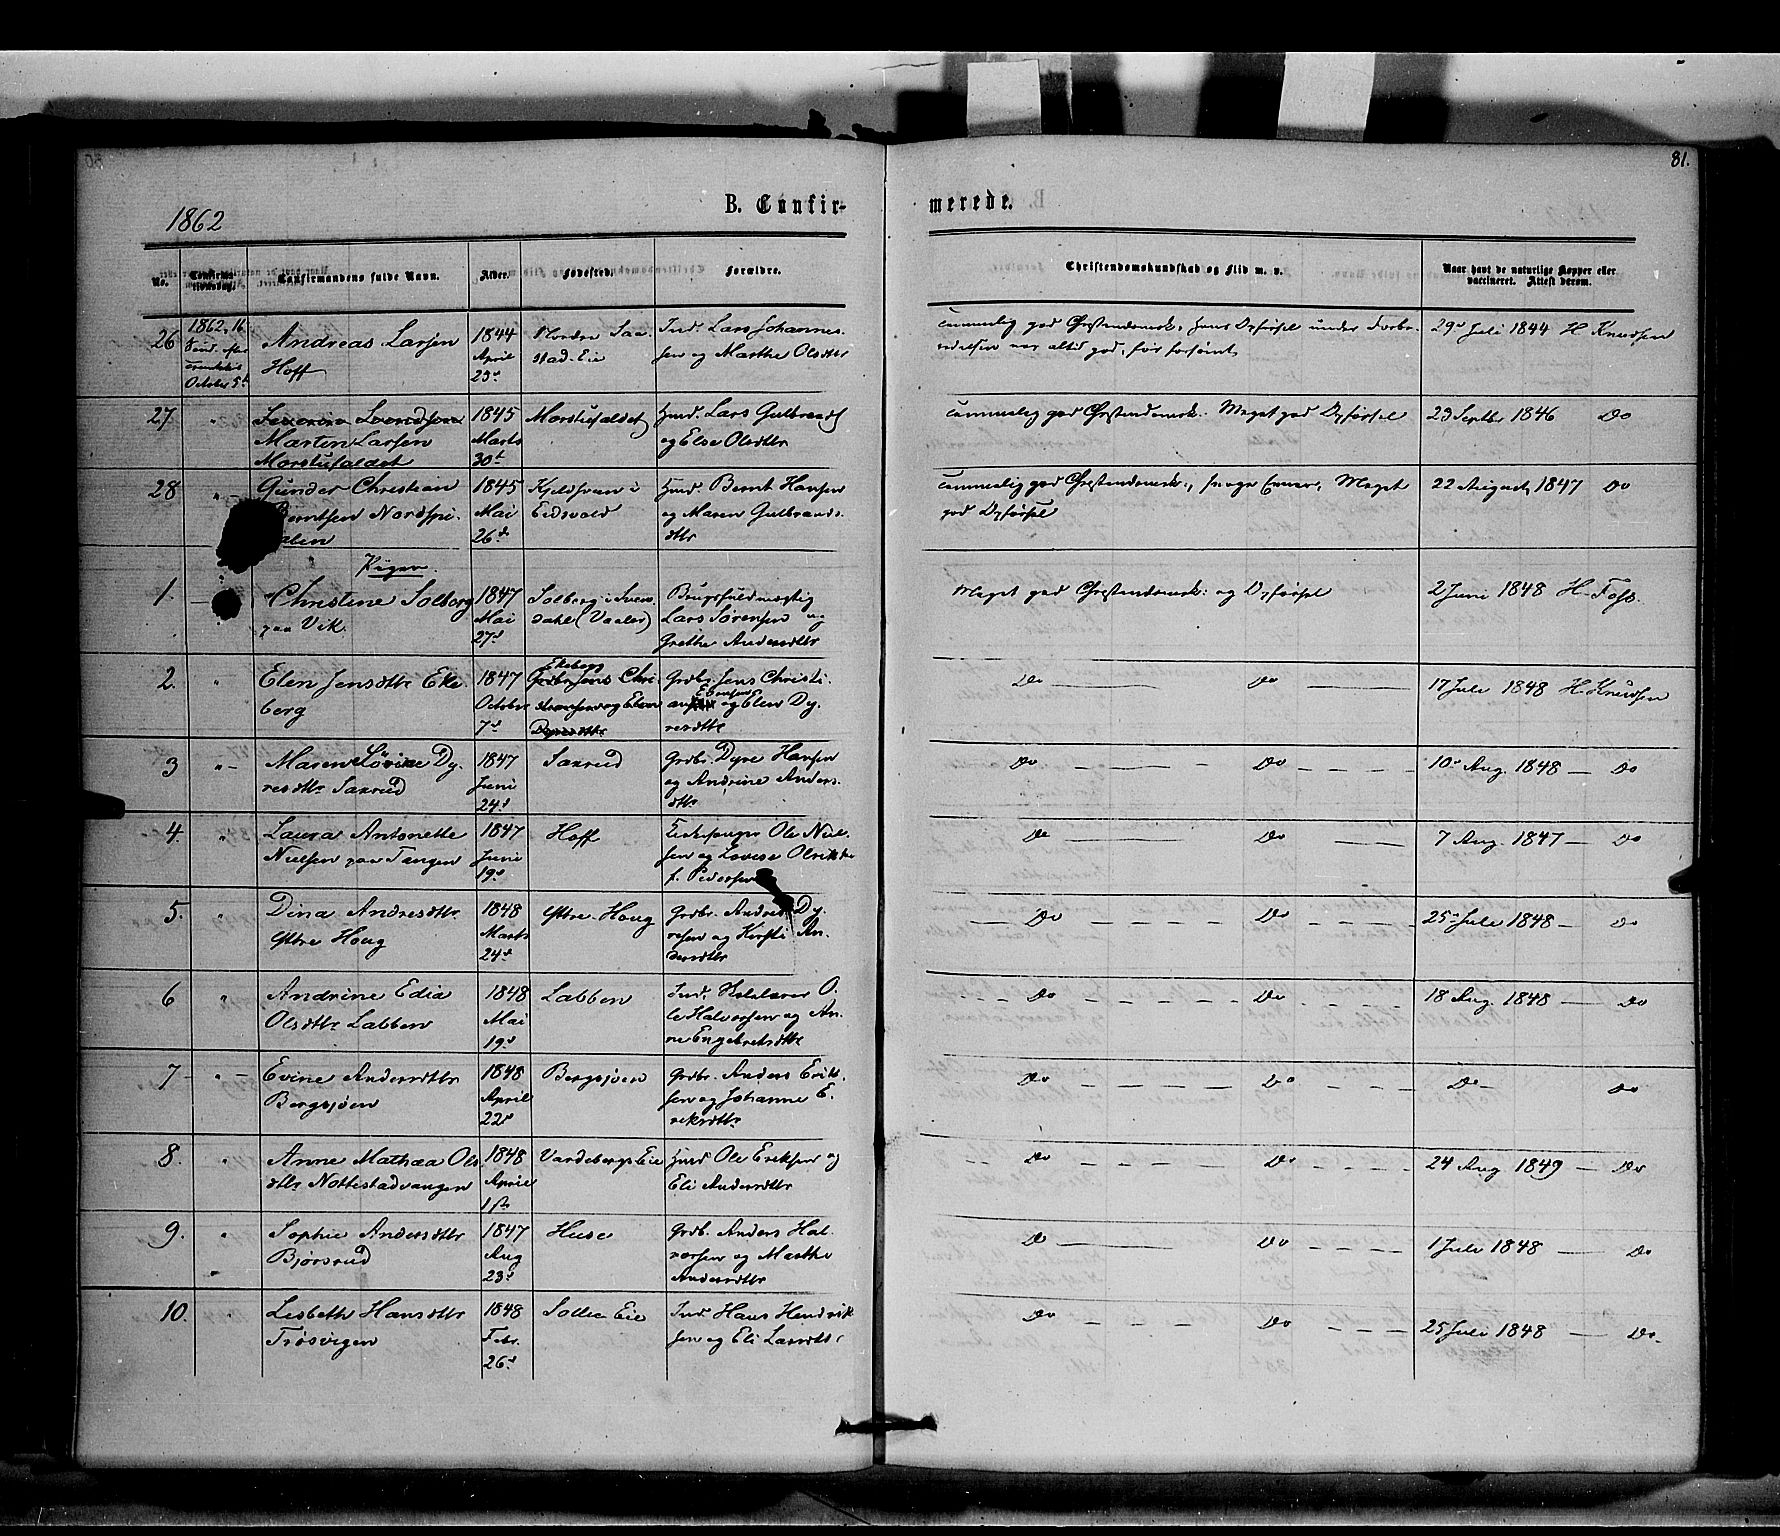 81.
B. Confir-
merede.
1862
No.
Confirmationsdag.
Confirmandens fulde Navn.
Alder.
Fødested.
Forældre.
Christendomskundskab og Flid m. v.
Naar havt de naturlige Kopper eller vaccineret. Attest derom.
26
1862, 16
Sønd. efter
October 5t
Andreas Larsen
Hoff
1844
April
25d
Nordre Saa
stad-Eie
Ind. Lars Johannes.
sen og Marthe Olsdttr
29d Juli 1844 H. Knudsen
27
"
Martin Larsen
Morstufaldet
1845
Marts
30t
Morstufaldet
Huusmd. Lars Gulbrands
og Else Olsdttr
Meget god Opførsel
23 Septbr 1846 Do
28
"
Gunder Christian
Berntsen Nordspi-
talen
1845
Mai
26d
Kjeldshuus i
Eidsvold
Huusmd. Bernt Hansen
og Maren Gulbrands.
dttr
Meget
god Opførsel
22 August 1847 Do
Piger.
1.
Christine Solberg
paa Vik.
1847
Mai
27d
Solberg i
dahl (Vaaler)
Brugsfuldmægtig
Lars Sørensen og
Grethe Andersdttr
Meget god Christendomsk: og Opførsel
2 Juni 1848 H. Foss.
2.
"
Elen Jensdttr Eke
berg
1847
October
7d
Ekeberg
Grdbr. Jens Chri
stiansen og Elen
Dyresdttr
Grdbr. Jens Christi.
ansen og Elen Dy.
resdttr
Do Do
17 Juli 1848 H. Knudsen
3
"
Maren Lovise Dy.
resdttr Saxrud
1847
Juni
24d
Saxrud
Grdbr. Dyre Hansen
og Andrine Anders.
dttr
Do Do
10d Aug. 1848 — Do
4.
"
Laura Antonette
Nielsen paa Tangen
1847
Juni
19d
Hoff
Kirkesanger Ole Niel-
sen og Lovise Olrikke
f. Pedersen
Do Do
7 Aug. 1847 — Do
5.
"
Dina Andresdttr
Østre Houg
1848
Marts
24d
Østre Houg
Grdbr. Andres Dy.
resen og Kirsti An-
dersdttr
Do Do
25d Juli 1848 — Do
6
"
Andrine Edia
Olsdttr Labben
1848
Mai
19d
Labben
Ind. Skolelærer O.
le Halvorsen og An.
ne Engebretsdttr
Do Do
18 Aug. 1848 — Do
7
"
Evine Andersdttr
Bergsjøen
1848
April
22d
Bergsjøen
Grdbr. Anders Erik.
sen og Johanne E.
riksdttr
Do Do
Do Do
8.
"
Anne Mathea Ols.
dttr Nøttestadvangen
1848
April
1ste
Vardebergs Eie
Huusmd. Ole Eriksen og
Eli Andersdttr
Do Do
24 Aug 1849 — Do
9.
"
Sophie Andersdttr
Bjørsrud
1847
Aug
23d
Huse
Grdb. Anders Hal-
vorsen og Marthe
Andersdttr
Do Do
1 Juli 1848 — Do
10.
"
Lisbeth Hansdttr
Trøsvigen
1848
Febr.
26d
Sollie Eie
Ind. Hans Hendrik
sen og Eli Larsdttr
Do Do
25 Juli 1848 — Do.